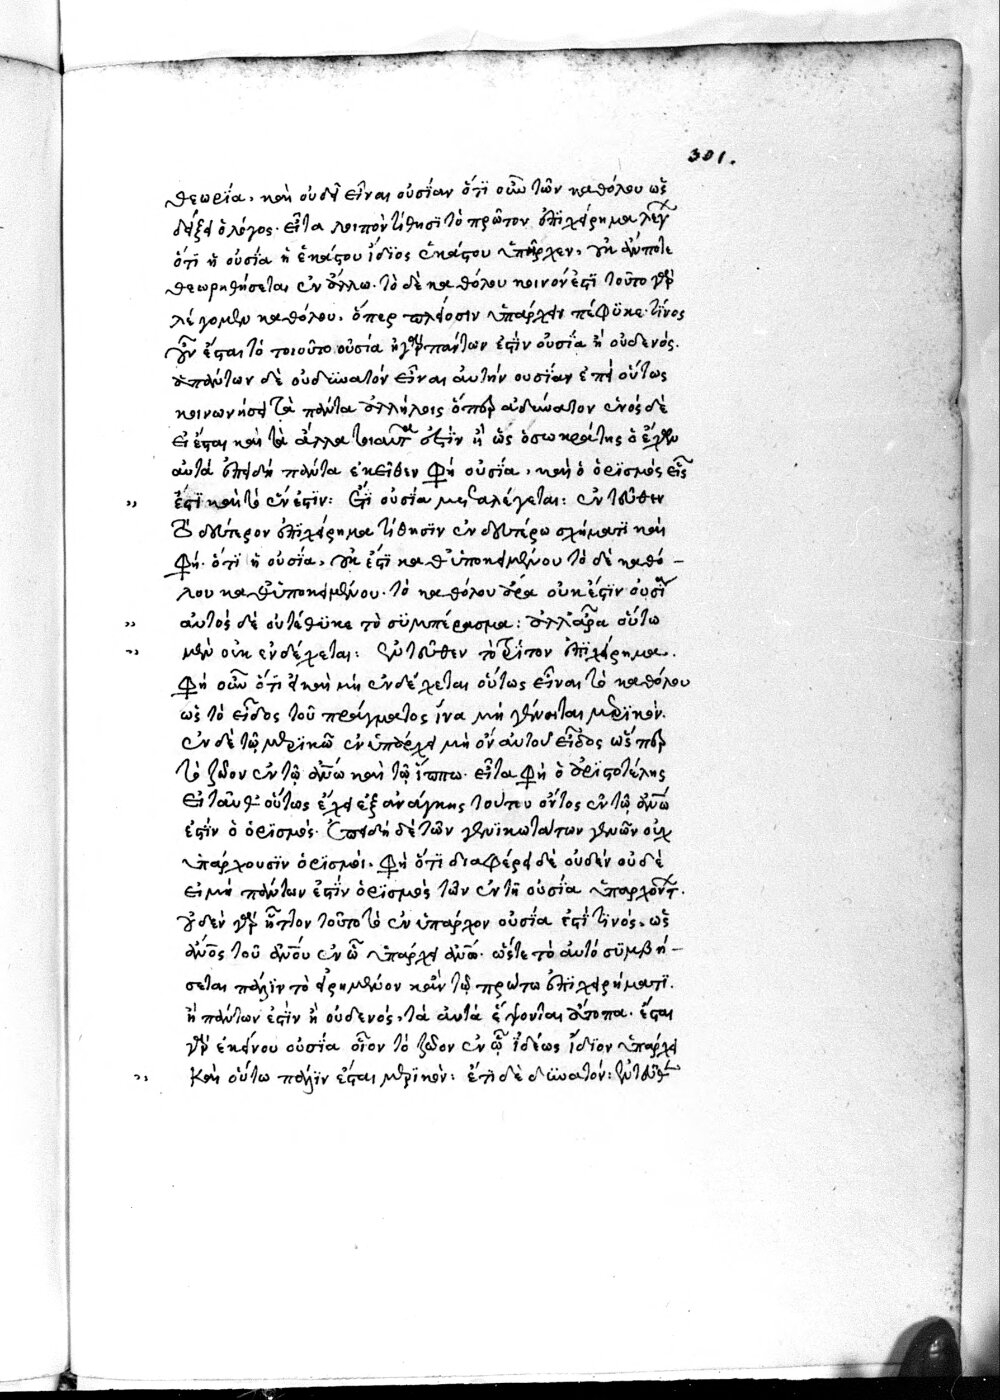 301.
θεωρία, καὶ οὐδὲ εἶναι οὐσίαν ὅτι οὖν τῶν καθόλου ὡς
δείξει ὁ λόγος. εἶτα λοιπὸν τίθησι τὸ πρῶτον ἐπιχείρημα λέγων
ὅτι ἡ οὐσία ἡ ἑκάστου ἴδιος ἑκάστου ὑπῆρχεν, οὐκ ἄν ποτε
θεωρηθήσεται ἐν ἄλλω. τὸ δὲ καθόλου κοινόν ἐστι τοῦτο γὰρ
λέγομεν καθόλου, ὅπερ πλείοσιν ὑπάρχειν πέφυκε. τίνος
οὖν ἔσται τὸ τοιοῦτο οὐσία ἢ γὰρ πάντων ἐστὶν οὐσία ἢ οὐδενός.
ἁπάντων δὲ οὐ δυνατὸν εἶναι αὐτὴν οὐσίαν ἐπεὶ οὕτως
κοινωνήσει τὰ πάντα ἀλλήλοις ὅπερ ἀδύνατον ἑνὸς δὲ
εἰ ἔσται καὶ τὰ ἄλλα τοιαῦτα ἐστὶν ἢ ὡς ὁ σωκράτης ὁ
αὐτά ἐπειδὴ πάντα ἐκεῖθεν φη οὐσία, καὶ ὁ ὁρισμὸς εἷς
ἐστι καὶ τὸ ἕν ἐστιν: Ἔτι οὐσία λέγεται: ἐντεῦθεν
τὸ δεύτερον ἐπιχείρημα τίθησιν ἐν δευτέρω σχήματι καὶ
φη. ὅτι ἡ οὐσία, οὐκ ἔστι καθ' ὑποκειμένου τὸ δὲ καθό-
λου καθ' ὑποκειμένου. τὸ καθόλου ἄρα οὐκ ἔστιν οὐσία
αὐτὸς δὲ οὐ τέθεικε τὸ συμπέρασμα: ἀλλ' ἆρα οὕτω
μὲν οὐκ ἐνδέχεται: Ἐντεῦθεν τὸ τρίτον ἐπιχείρημα.
φη οὖν ὅτι εἰ καὶ μὴ ἐνδέχεται οὕτως εἶναι τὸ καθόλου
ὡς τὸ εἶδος τοῦ πράγματος ἵνα μὴ γένηται μερικόν.
ἐν δὲ τῶ μερικῶ ἐνυπάρχει μὴ ὂν αὐτοῦ εἶδος ὥσπερ
τὸ ζῶον ἐν τῶ ἀνω καὶ τῶ ἵππω. εἶτα φη ὁ ἀριστοτέλης
εἰ ταῦθ' οὕτως ἔχει ἐξ ἀνάγκης τούτου ὄντος ἐν τῶ ἀνω
ἐστὶν ὁ ὁρισμός. ἐπειδὴ δὲ τῶν γενικωτάτων γενῶν οὐχ
ὑπάρχουσιν ὁρισμοί. φη ὅτι διαφέρει δὲ οὐδὲν οὐδὲ
εἰ μὴ πάντων ἐστὶν ὁρισμὸς τῶν ἐν τῇ οὐσία ὑπαρχόντων.
οὐδὲν γὰρ ἧττον τοῦτο τὸ ἐνυπάρχον οὐσία ἐστί τινός, ὡς
ἀνος τοῦ ἀνου ἐν ὧ ὑπάρχει ἀνω. ὥστε τὸ αὐτὸ συμβή-
σεται πάλιν τὸ εἰρημένον κἀν τῶ πρώτω ἐπιχειρήματι.
ἢ πάντων ἐστὶν ἢ οὐδενός, τὰ αὐτὰ ἕψονται ἄτοπα. ἔσται
γὰρ ἐκείνου οὐσία οἷον τὸ ζῶον ἐν ὧ ἰδέως ἴδιον ὑπάρχει
καὶ οὕτω πάλιν ἔσται μερικόν: ἔτι δὲ δυνατόν: ἐντεῦθεν